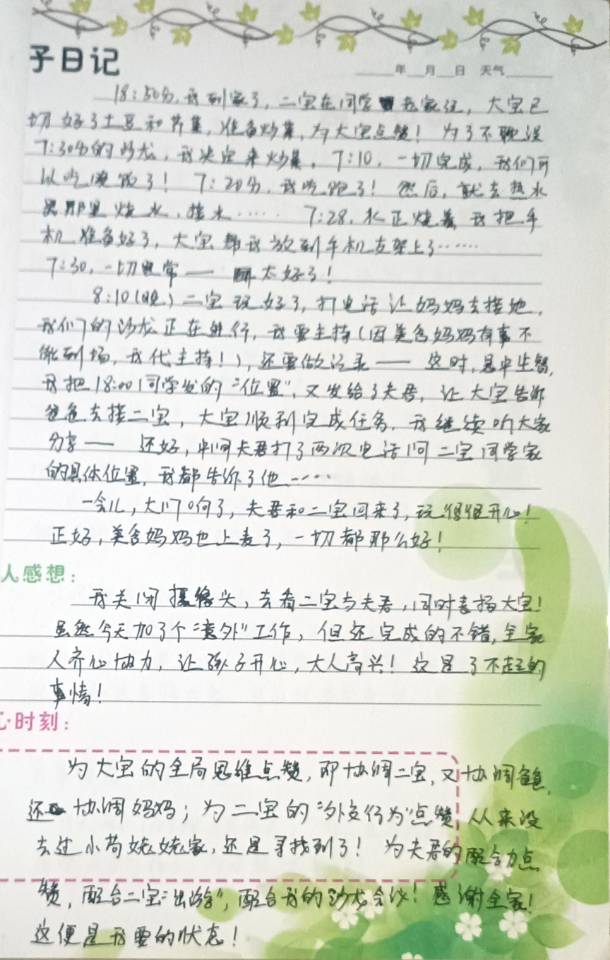 子日记
年 月 日 天气
18:50分,我到家了,二宝在同学 家玩,大宝已
切好了土豆和芹菜,准备炒菜,为大宝点赞!为了不耽误
7:30分的沙龙,我决定来炒菜,7:10,一切完成,我们可
以吃晚饭了!7:20分,我吃饱了!然后,就去热水
器那里烧水,接水…… 7:28,水正烧着,我把手
机准备好了,大宝帮我放到手机支架上了……
7:30,一切正常—— 太好了!
8:10(晚)二宝玩好了,打电话让妈妈去接她,
我们的沙龙正在进行,我要主持(因美含妈妈有事不
能到场,我代主持!),还要做记录——这时,急中生智,
我把18:00同学发的"位置",又发给了夫君,让大宝告诉
爸爸去接二宝,大宝顺利完成任务,我继续听大家
分享——还好,中间夫君打了两次电话问二宝同学家
的具体位置,我都告诉了他……
一会儿,大门响了,夫君和二宝回来了,玩得很开心!
正好,美含妈妈也上麦了,一切都那么好!
人感想:
我关闭摄像头,去看二宝与夫君,同时表扬大宝!
虽然今天加了个"意外"工作,但还完成的不错,全家
人齐心协力,让孩子开心,大人高兴!这是了不起的
事情!
心时刻:
为大宝的全局思维点赞,即协调二宝,又协调爸爸,
还 协调妈妈;为二宝的"外交行为"点赞,从来没
去过小苟姥姥家,还是寻找到了!为夫君的配合力点
赞,配合二宝"出游",配合我的沙龙会议!感谢全家!
这便是我要的状态!